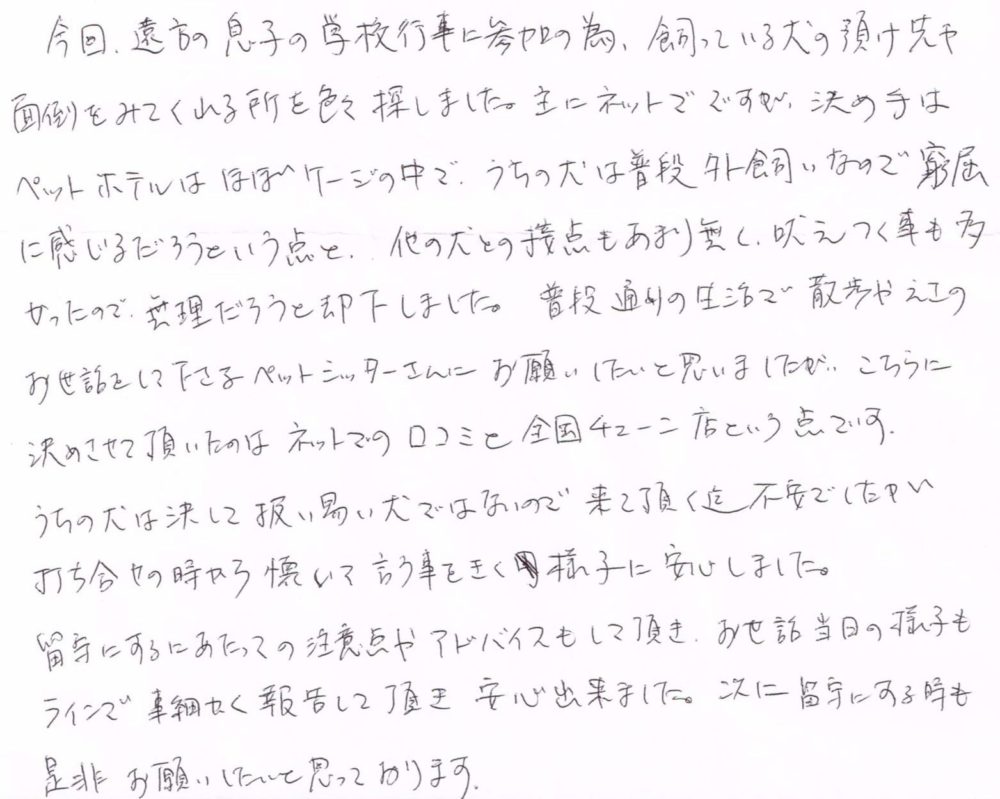 今回、遠方の息子の学校行事に参加の為、飼っている犬の預け先や
面倒をみてくれる所を色々探しました。主にネットでですが、決め手は
ペットホテルはほぼケージの中で、うちの犬は普段外飼いなので窮屈
に感じるだろうという点と、他の犬との接点もあまり無く、吠えつく事も多
かったので、無理だろうと却下しました。普段通りの生活で散歩やえさの
お世話をして下さるペットシッターさんにお願いしたいと思いましたが、こちらに
決めさせて頂いたのはネットでの口コミと全国チェーン店という点です。
うちの犬は決して扱い易い犬ではないので来て頂く迄不安でしたが
打ち合せの時から懐いて言う事をきく様子に安心しました。
留守にするにあたっての注意点やアドバイスもして頂き、お世話当日の様子も
ラインで事細かく報告して頂き安心出来ました。次に留守にする時も
是非お願いしたいと思っております。